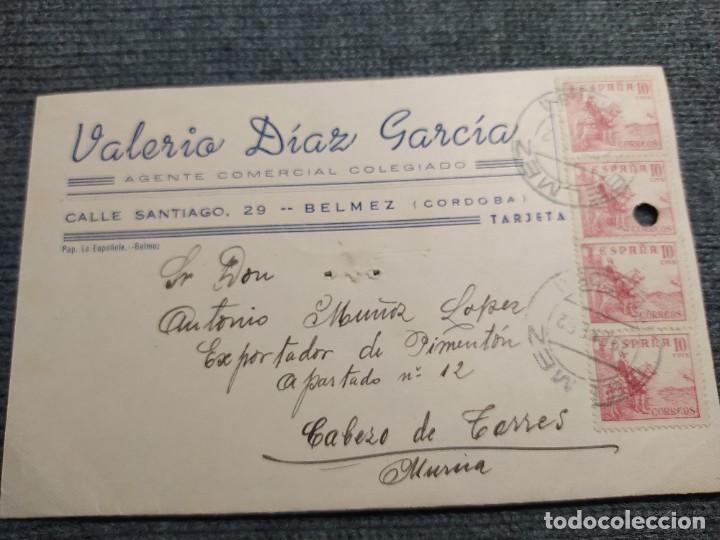 Valerio Díaz García
AGENTE COMERCIAL COLEGIADO
CALLE SANTIAGO, 29 -- BELMEZ (CORDOBA)
TARJETA
Pap. La Española.--Belmez
Sr Don
Antonio Muñoz Lopez
Exportador de Pimentón
Apartado nº 12
Cabezo de Torres
Murcia
ESPAÑA 10
CTS
CORREOS
CORREOS
ESPAÑA 10
CTS
CORREOS
ESPAÑA 10
CTS
CORREOS
MEZ
MEZ
todocoleccion.net